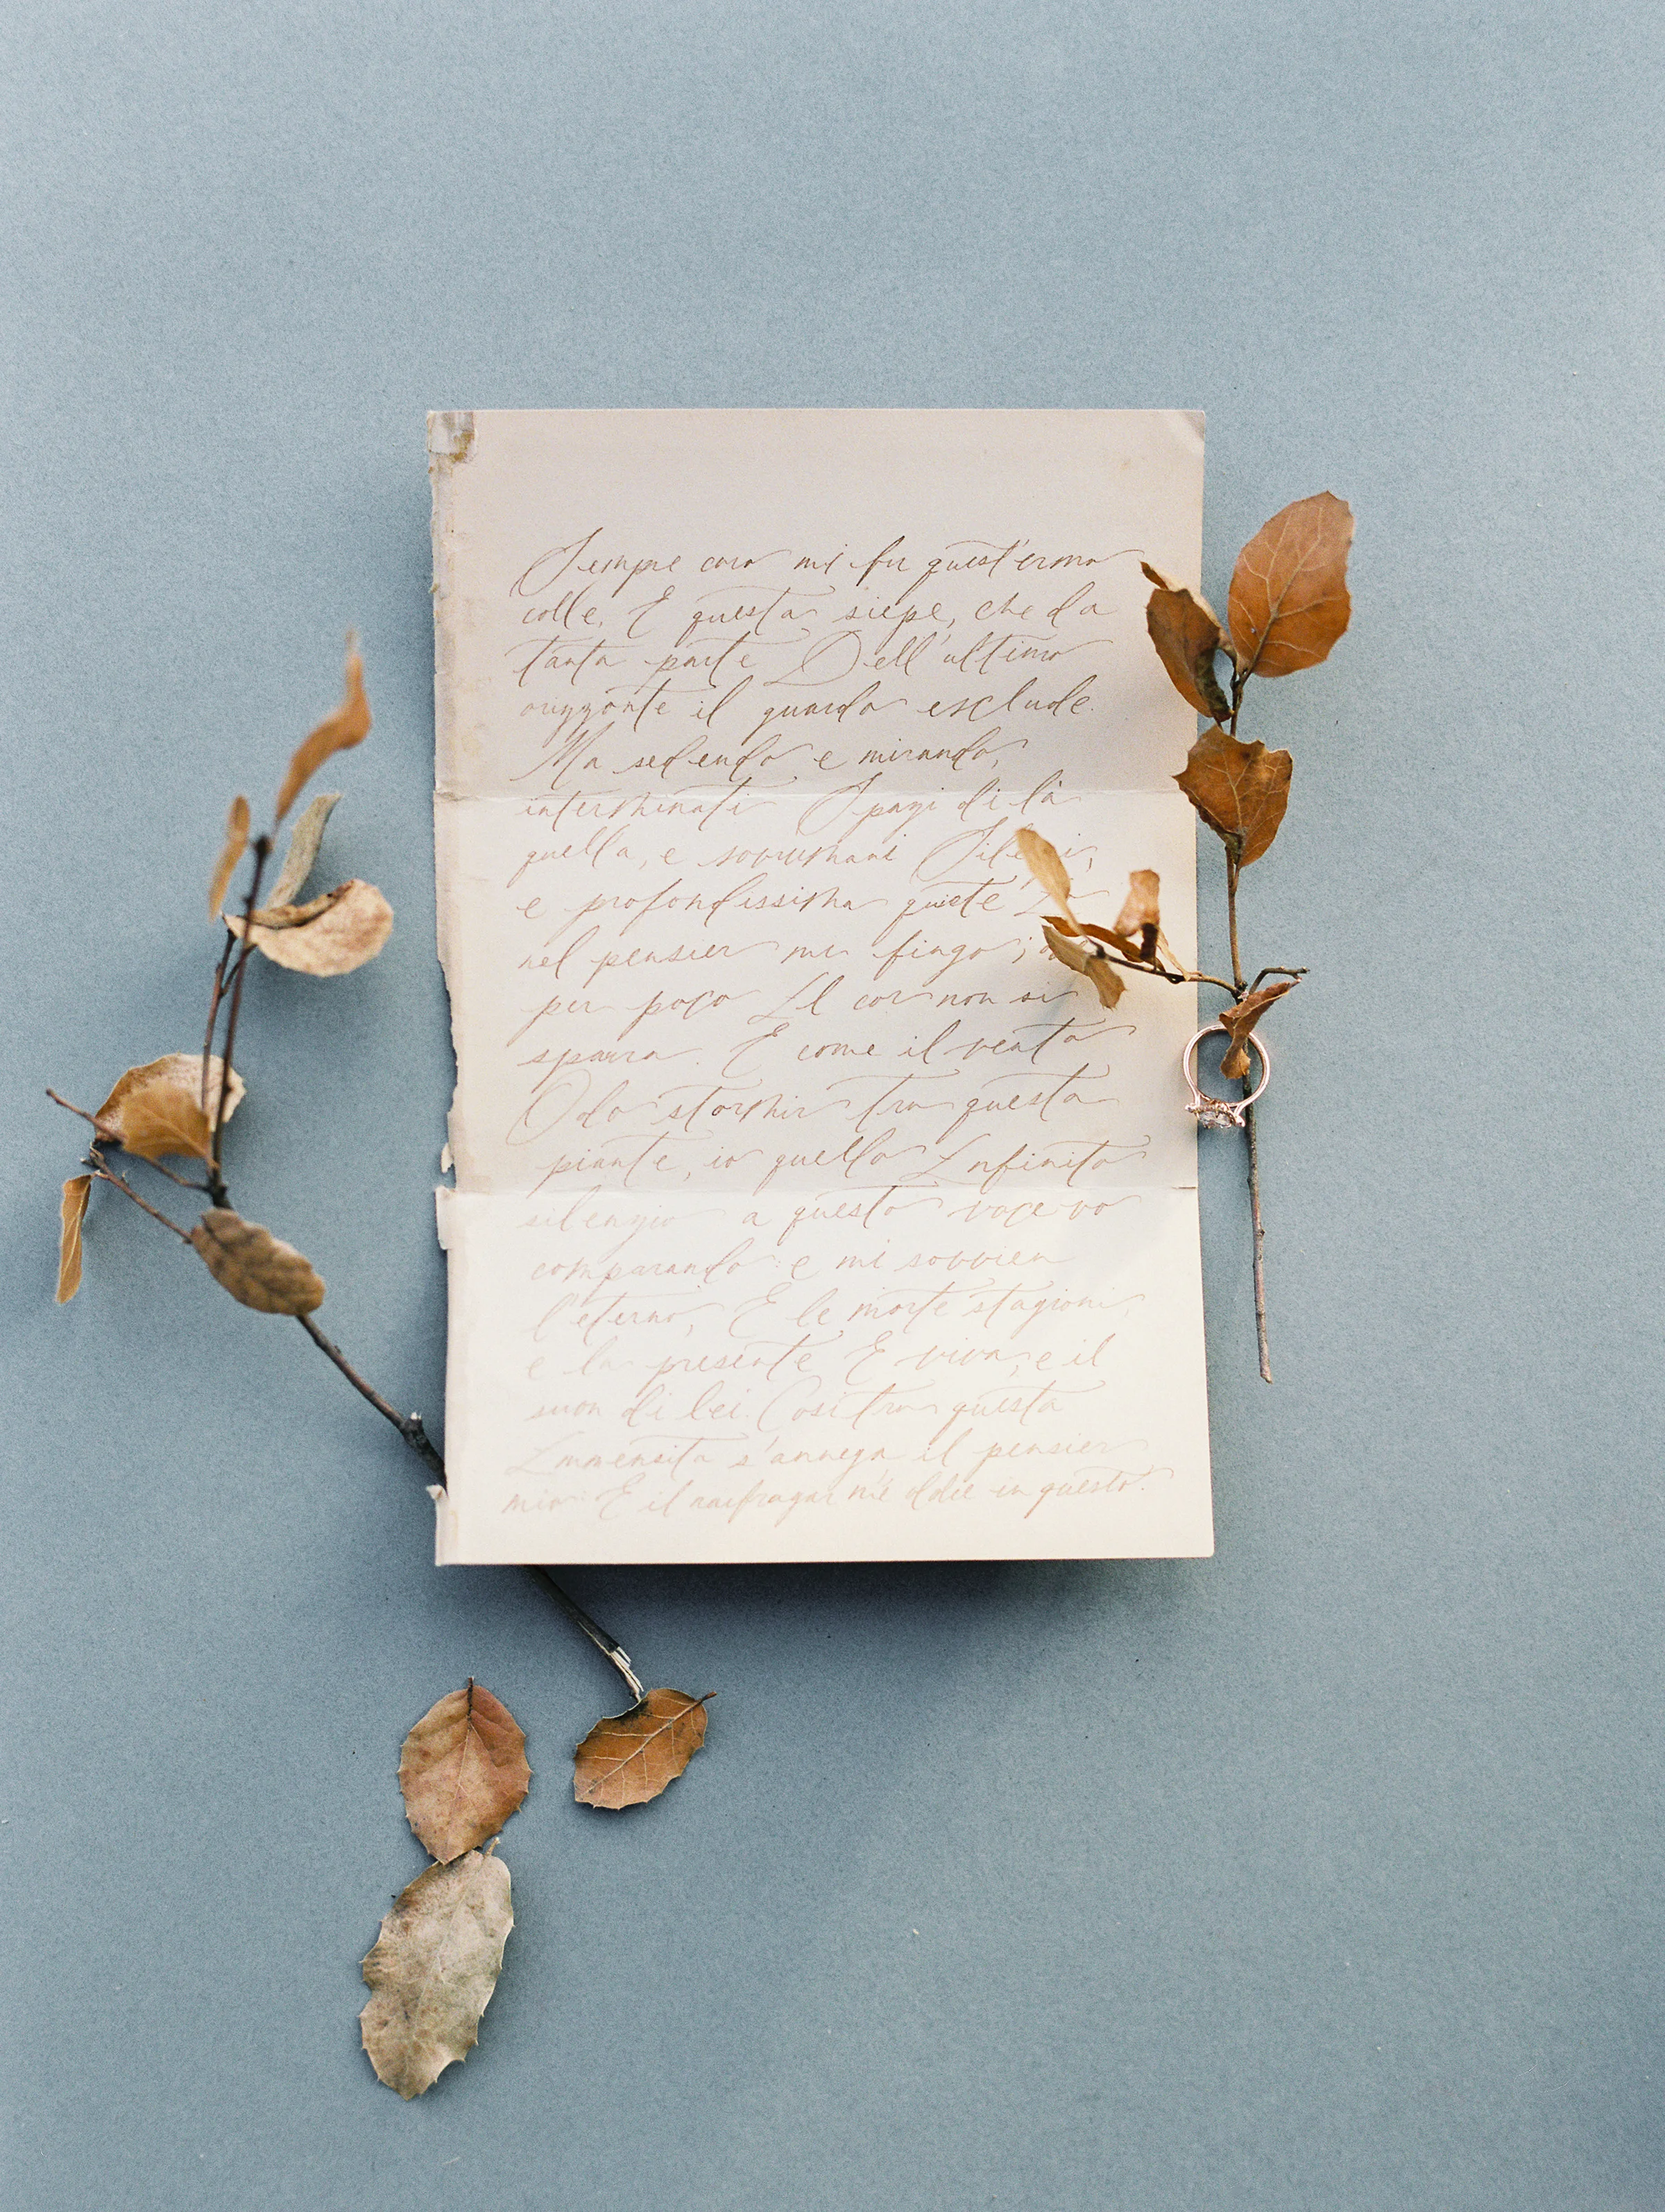 Sempre caro mi fu quest'ermo
colle, E questa siepe, che da
tanta parte Dell'ultimo
orizzonte il guardo esclude.
Ma sedendo e mirando,
interminati Spazi di là
quella, e sovrumani Silenzi,
e profondissima quiete Io
nel pensier mi fingo;
per poco Il cor non si
spaura. E come il vento
Odo stormir tra queste
piante, io quello Infinito
silenzio a questa voce vo
comparando: e mi sovvien
l'eterno, E le morte stagioni,
e la presente E viva, e il
suon di lei. Così tra questa
Immensità s'annega il pensier
mio: E il naufragar m'è dolce in questo.